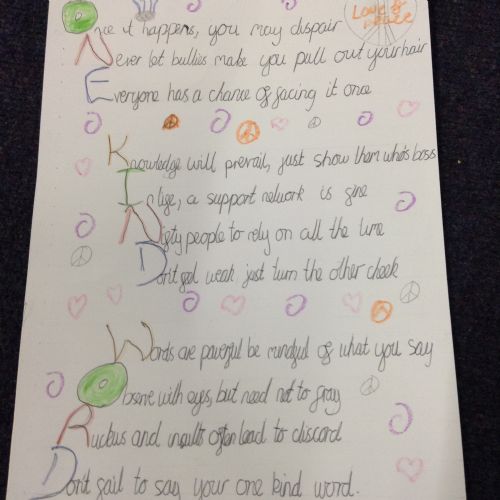 Love &
Peace
Once it happens, you may dispair
Never let bullies make you pull out your hair
Everyone has a chance of facing it once
Knowledge will prevail, just show them who's boss
In life, a support network is fine
people to rely on all the time
Don't feel weak just turn the other cheek
Words are powerful be mindful of what you say
Observe with eyes, but need not to fray
Ruckus and insults often lead to discord
Don't fail to say your one kind word.